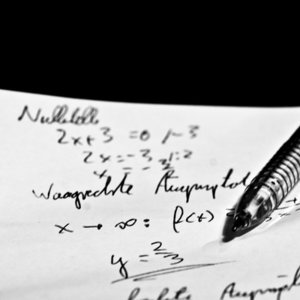 Nullstelle
2x+3 =0 |-3
2x=-3 |:2
x = -3/2
Waagrechte Asymptote
x → ∞:
y = 2/3
Asymptote